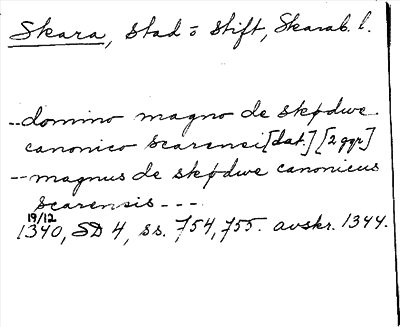 Skara, stad o stift, Skarab. l.
-- domino magno de skepdwe
canonico scarensi [dat.] [2 ggr]
-- magnus de skepdwe canonicus
scarensis ---
19/12
1340, SD 4, ss. 754, 755. avskr. 1344.